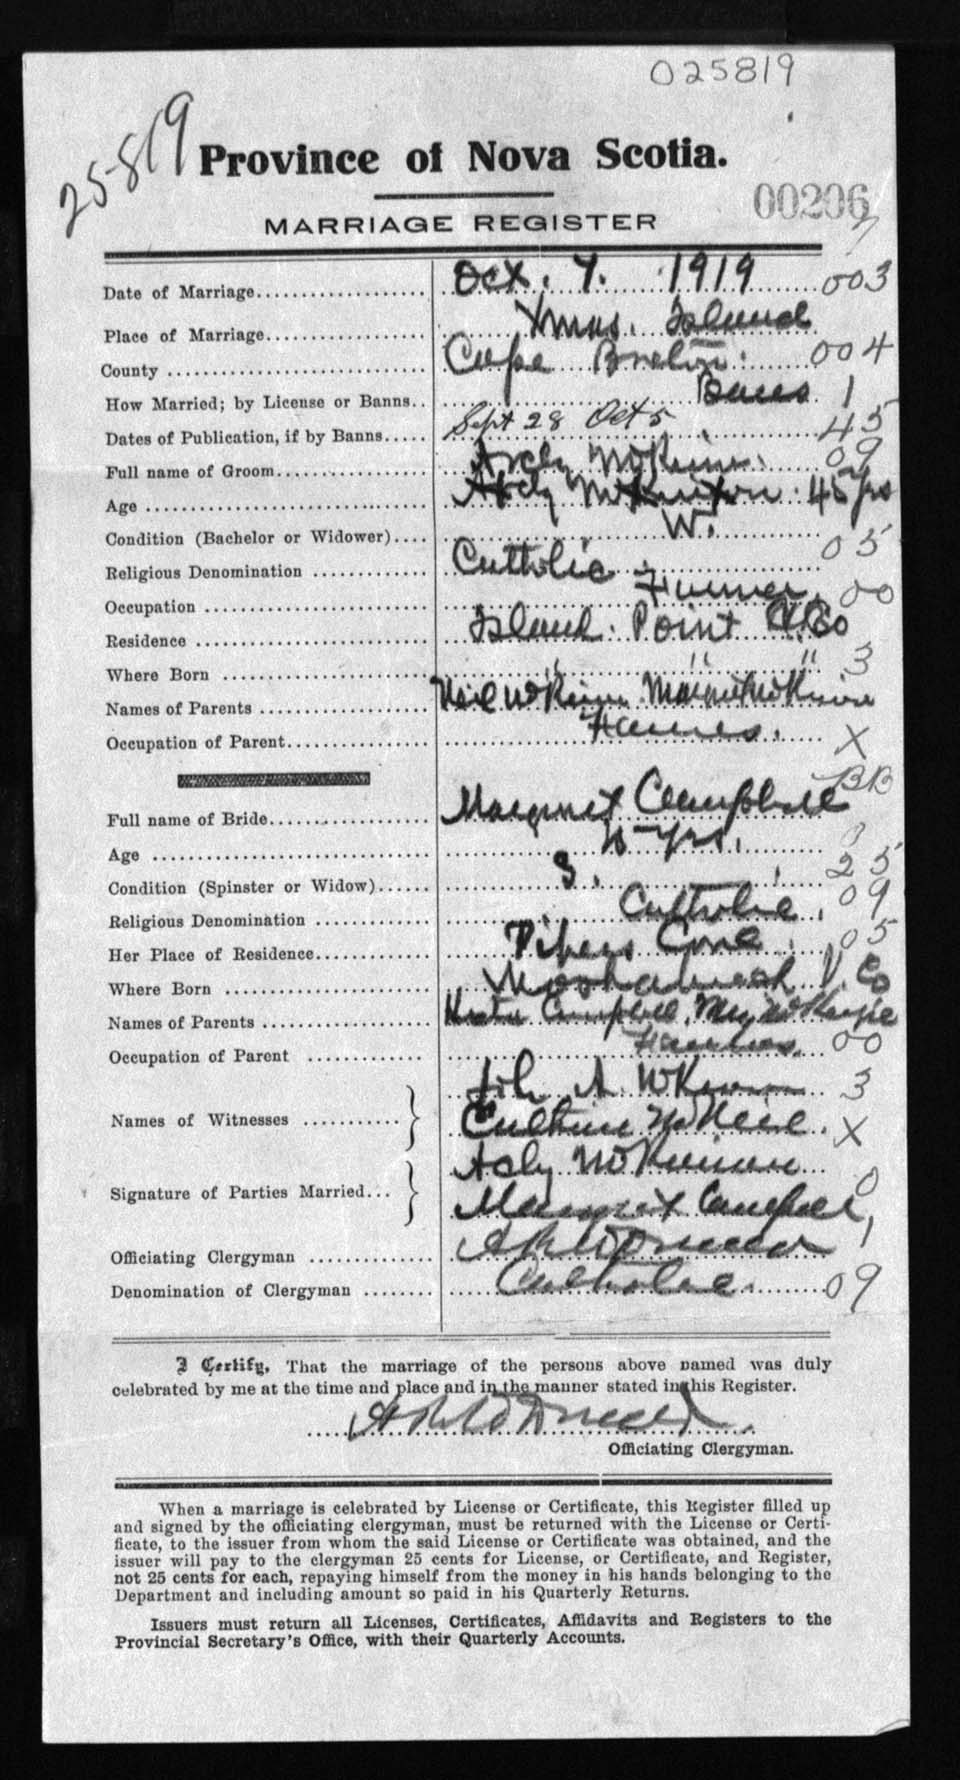 025819
25819
Province of Nova Scotia.
00206
MARRIAGE REGISTER
Date of Marriage Oct. 7. 1919 003
Place of Marriage Xmas. Island
County Cape Breton 004
How Married; by License or Banns Banns 1
Dates of Publication, if by Banns Sept 28 Oct 5 45
Full name of Groom 09
Age 45 yrs
Condition (Bachelor or Widower) W.
Religious Denomination Catholic 05
Occupation Farmer. 00
Residence Island Point
Where Born " " " 3
Names of Parents Neil McKinnon
Occupation of Parent Farmer. X
BB
Full name of Bride Margaret Campbell
Age yrs. 0
Condition (Spinster or Widow) S. 25
Religious Denomination Catholic. 09
Her Place of Residence Pipers Cove. 05
Where Born V. Co
Names of Parents Campbell,
Occupation of Parent Farmer. 00
Names of Witnesses A. McKinnon 3
McNeil. X
Signature of Parties Married McKinnon 0
Margaret Campbell, 1
Officiating Clergyman
Denomination of Clergyman Catholic. 09
I Certify, That the marriage of the persons above named was duly
celebrated by me at the time and place and in the manner stated in this Register.
Officiating Clergyman.
When a marriage is celebrated by License or Certificate, this Register filled up
and signed by the officiating clergyman, must be returned with the License or Certi-
ficate, to the issuer from whom the said License or Certificate was obtained, and the
issuer will pay to the clergyman 25 cents for License, or Certificate, and Register,
not 25 cents for each, repaying himself from the money in his hands belonging to the
Department and including amount so paid in his Quarterly Returns.
Issuers must return all Licenses, Certificates, Affidavits and Registers to the
Provincial Secretary's Office, with their Quarterly Accounts.